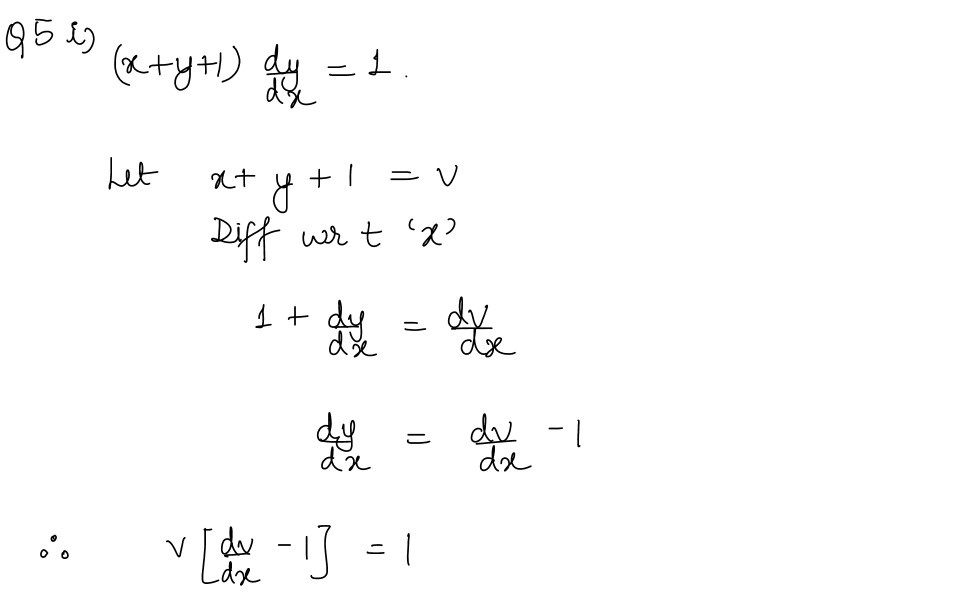 Q5 i)
(x+y+1) dy/dx = 1.
Let x + y + 1 = v
Diff wr t 'x'
1 + dy/dx = dv/dx
dy/dx = dv/dx - 1
∴ v [dv/dx - 1] = 1